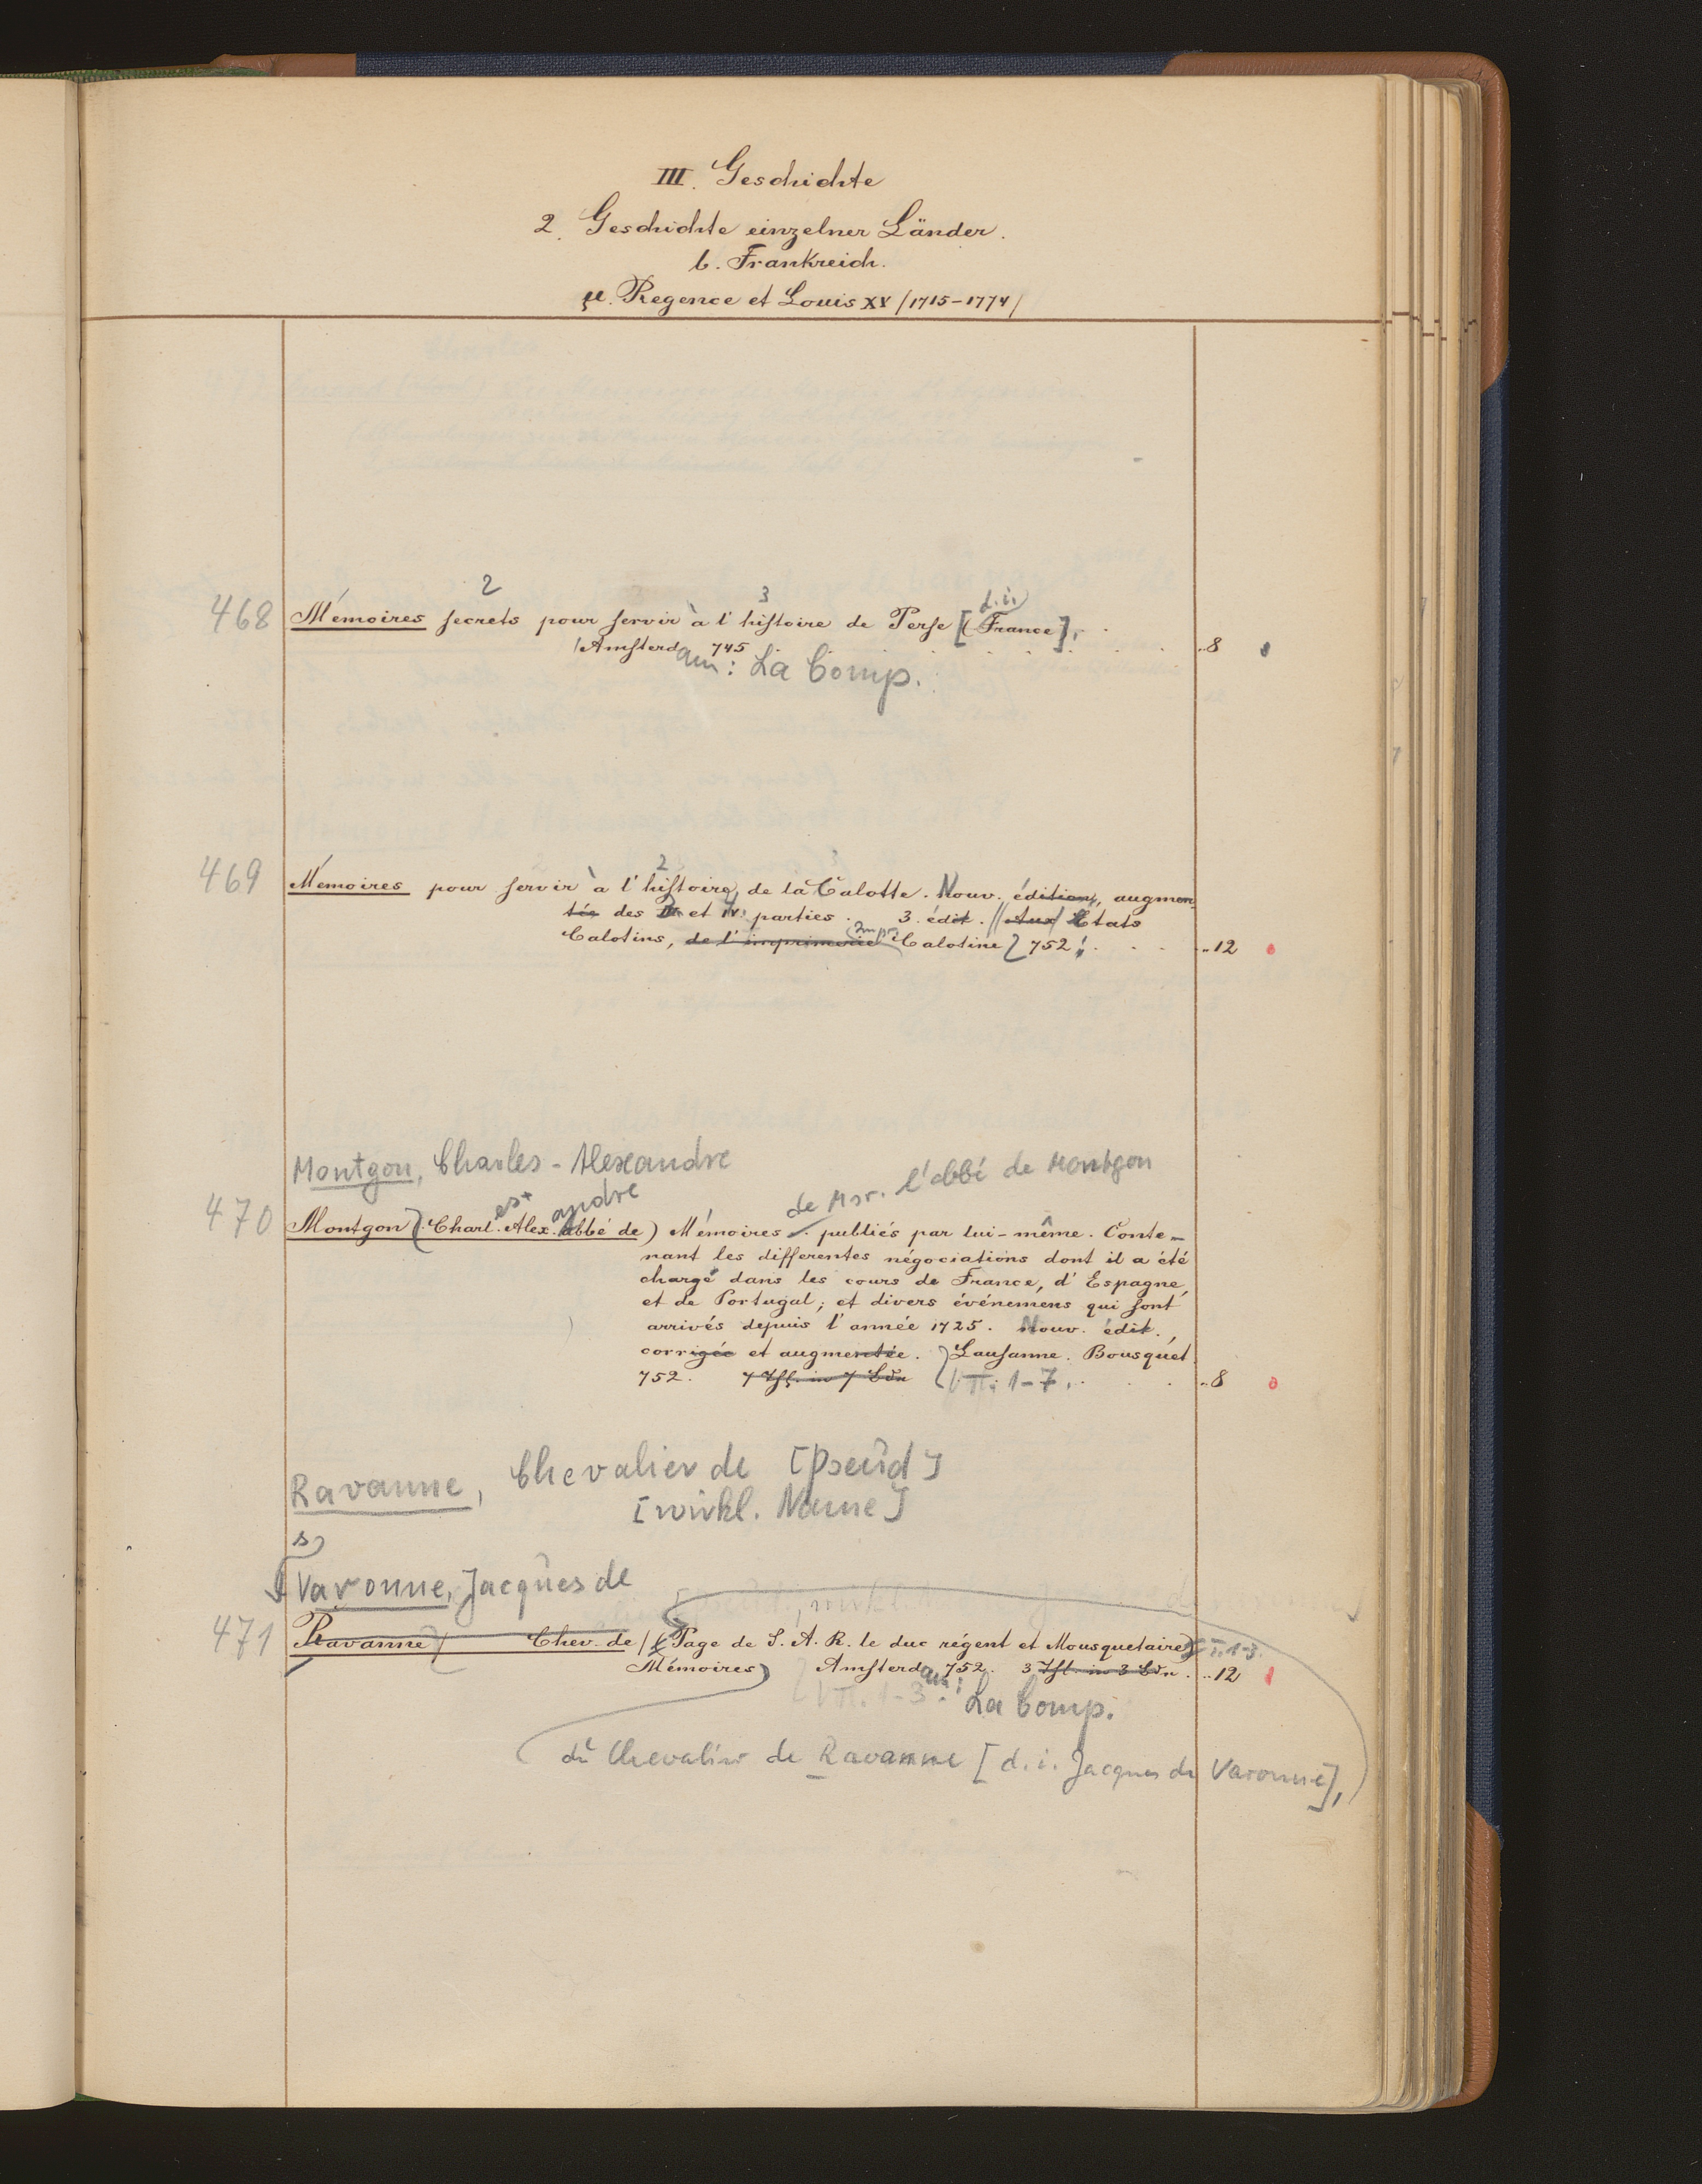 III. Geschichte
2. Geschichte einzelner Länder.
b. Frankreich.
µ. Regence et Louis XV /1715-1774/
2 3 d.i.
468 Mémoires secrets pour servir à l'histoire de Perse [(France],
/Amsterdam: 745 ..8
La Comp.
2
469 Mémoires pour servir à l'histoire, de la Calotte. Nouv. édition, augmen-
tée des III et IV. parties. 3. édit. // Aux/ Etats
Calotins, de l'imprimerie Impr. Calotine 752. ..12
Montgon, Charles-Alexandre
de Msr. l'abbé de Montgon
es+ andre
470 Montgon (Charl. Alex. abbé de) Mémoires publiés par lui-même. Conte-
nant les differentes négociations dont il a été
chargé dans les cours de France, d'Espagne,
et de Portugal; et divers événemens qui sont
arrivés depuis l'année 1725. Nouv. édit.,
corrigée et augmentée. Lausanne. Bousquet
752. 7 Thl. in 7 Bdn T. 1-7. ..8
Ravanne, Chevalier de [Pseud]
[wirkl. Name]
s
Varonne, Jacques de
471 Ravanne/ Chev. de/ (Page de S. A. R. le duc régent et Mousquetaire) T. 1-3.
Mémoires) Amsterdam: 752. 3 Thl. in 3 Bdn. ..12
T. 1-3. La Comp.
du Chevalier de Ravanne [d. i. Jacques de Varonne],